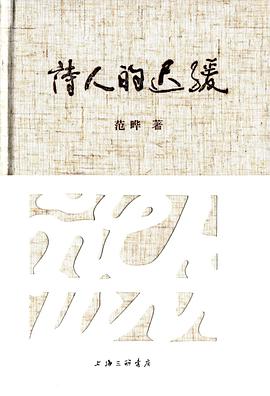 詩人的迟緩
范晔 著
上海三联书店